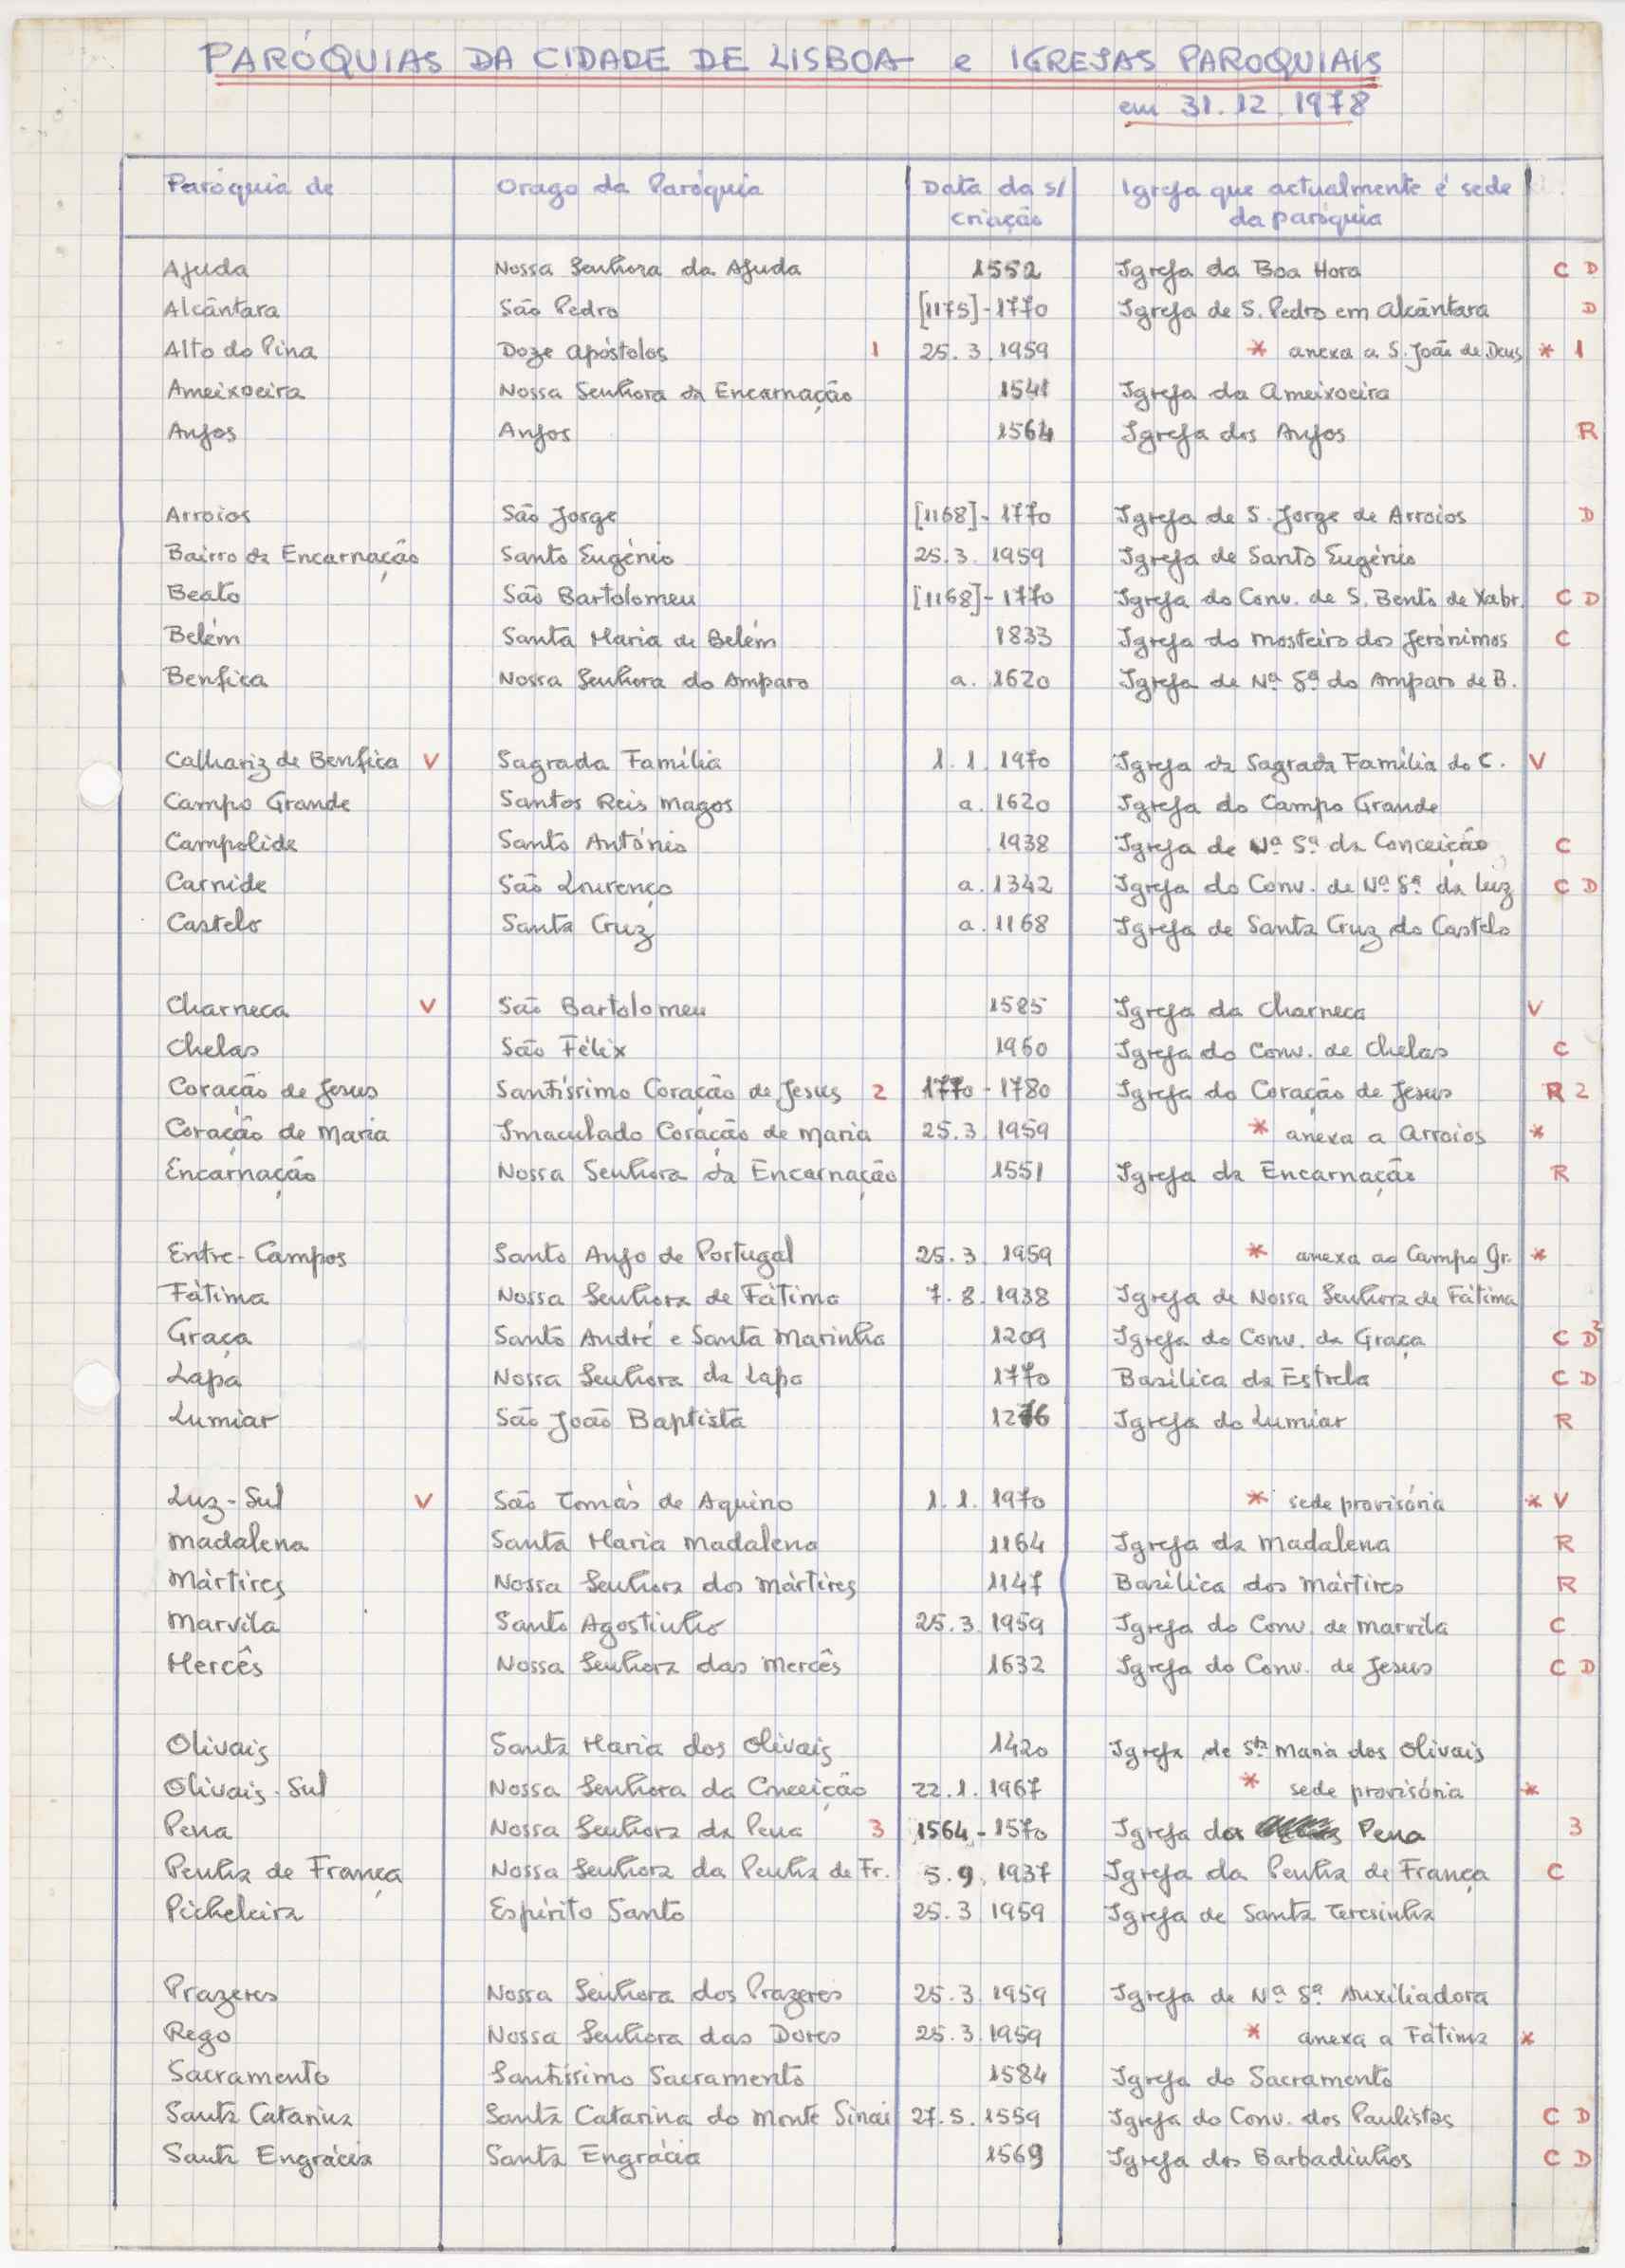 PARÓQUIAS DA CIDADE DE LISBOA e IGREJAS PAROQUIAIS
em 31.12.1978
Paróquia de Orago da Paróquia Data da s/ Igreja que actualmente é sede
criação da paróquia
Ajuda Nossa Senhora da Ajuda 1552 Igreja da Boa Hora C D
Alcântara São Pedro [1175]-1770 Igreja de S. Pedro em Alcântara D
Alto do Pina Doze Apóstolos 1 25.3.1959 * anexa a S. João de Deus * 1
Ameixoeira Nossa Senhora da Encarnação 1541 Igreja da Ameixoeira
Anjos Anjos 1564 Igreja dos Anjos R
Arroios São Jorge [1168]-1770 Igreja de S. Jorge de Arroios D
Bairro da Encarnação Santo Eugénio 25.3.1959 Igreja de Santo Eugénio
Beato São Bartolomeu [1168]-1770 Igreja do Conv. de S. Bento de Xabr. C D
Belém Santa Maria de Belém 1833 Igreja do Mosteiro dos Jerónimos C
Benfica Nossa Senhora do Amparo a. 1620 Igreja de Nª Sª do Amparo de B.
Calhariz de Benfica V Sagrada Família 1.1.1970 Igreja da Sagrada Família do C. V
Campo Grande Santos Reis Magos a. 1620 Igreja do Campo Grande
Campolide Santo António 1938 Igreja de Nª Sª da Conceição C
Carnide São Lourenço a. 1342 Igreja do Conv. de Nª Sª da Luz C D
Castelo Santa Cruz a. 1168 Igreja de Santa Cruz do Castelo
Charneca V São Bartolomeu 1585 Igreja da Charneca V
Chelas São Félix 1960 Igreja do Conv. de Chelas C
Coração de Jesus Santíssimo Coração de Jesus 2 1770-1780 Igreja do Coração de Jesus R 2
Coração de Maria Imaculado Coração de Maria 25.3.1959 * anexa a Arroios *
Encarnação Nossa Senhora da Encarnação 1551 Igreja da Encarnação R
Entre-Campos Santo Anjo de Portugal 25.3.1959 * anexa ao Campo Gr. *
Fátima Nossa Senhora de Fátima 7.8.1938 Igreja de Nossa Senhora de Fátima
Graça Santo André e Santa Marinha 1209 Igreja do Conv. da Graça C D²
Lapa Nossa Senhora da Lapa 1770 Basílica da Estrela C D
Lumiar São João Baptista Igreja do Lumiar R
Luz-Sul V São Tomás de Aquino 1.1.1970 * sede provisória * V
Madalena Santa Maria Madalena 1164 Igreja da Madalena R
Mártires Nossa Senhora dos Mártires 1147 Basílica dos Mártires R
Marvila Santo Agostinho 25.3.1959 Igreja do Conv. de Marvila C
Mercês Nossa Senhora das Mercês 1632 Igreja do Conv. de Jesus C D
Olivais Santa Maria dos Olivais 1420 Igreja de Stª Maria dos Olivais
Olivais-Sul Nossa Senhora da Conceição 22.1.1967 * sede provisória *
Pena Nossa Senhora da Pena 3 1564-1570 Igreja da Pena 3
Penha de França Nossa Senhora da Penha de Fr. 5.9.1937 Igreja da Penha de França C
Picheleira Espírito Santo 25.3.1959 Igreja de Santa Teresinha
Prazeres Nossa Senhora dos Prazeres 25.3.1959 Igreja de Nª Sª Auxiliadora
Rego Nossa Senhora das Dores 25.3.1959 * anexa a Fátima *
Sacramento Santíssimo Sacramento 1584 Igreja do Sacramento
Santa Catarina Santa Catarina do Monte Sinai 27.5.1559 Igreja do Conv. dos Paulistas C D
Santa Engrácia Santa Engrácia 1569 Igreja dos Barbadinhos C D